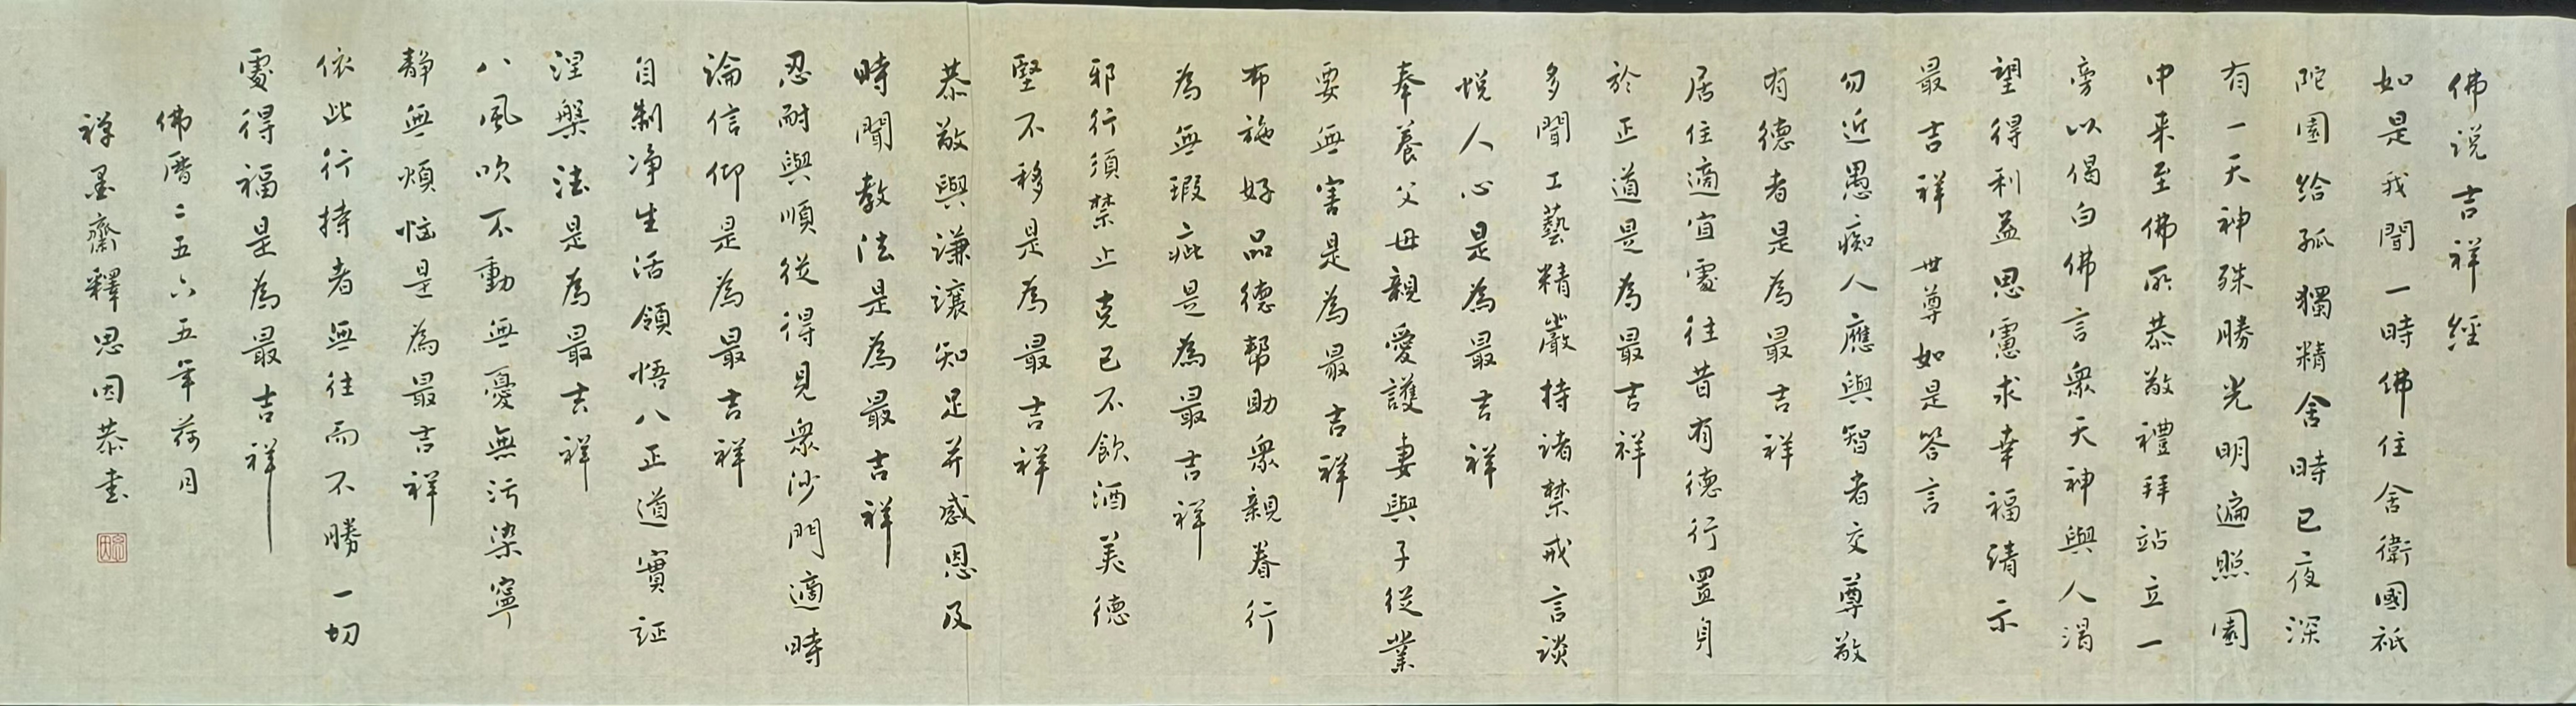 佛说吉祥經
如是我聞一時佛住舍衛國祇
陀園給孤獨精舍時已夜深
有一天神殊勝光明遍照園
中来至佛所恭敬禮拜站立一
旁以偈白佛言衆天神與人渴
望得利益思慮求幸福请示
最吉祥世尊如是答言
勿近愚痴人應與智者交尊敬
有德者是為最吉祥
居住適宜處往昔有德行置身
於正道是為最吉祥
多聞工藝精嚴持诸禁戒言談
悦人心是為最吉祥
奉養父母親愛護妻與子從業
要無害是為最吉祥
布施好品德幫助衆親眷行
為無瑕疵是為最吉祥
邪行須禁止克己不飲酒美德
堅不移是為最吉祥
恭敬與谦讓知足并感恩及
時聞教法是為最吉祥
忍耐與順從得見衆沙門適時
論信仰是為最吉祥
自制净生活領悟八正道實証
涅槃法是為最吉祥
八風吹不動無憂無污染寧
静無煩惱是為最吉祥
依此行持者無往而不勝一切
處得福是為最吉祥
佛曆二五六五年荷月
禅墨齋釋思因恭書